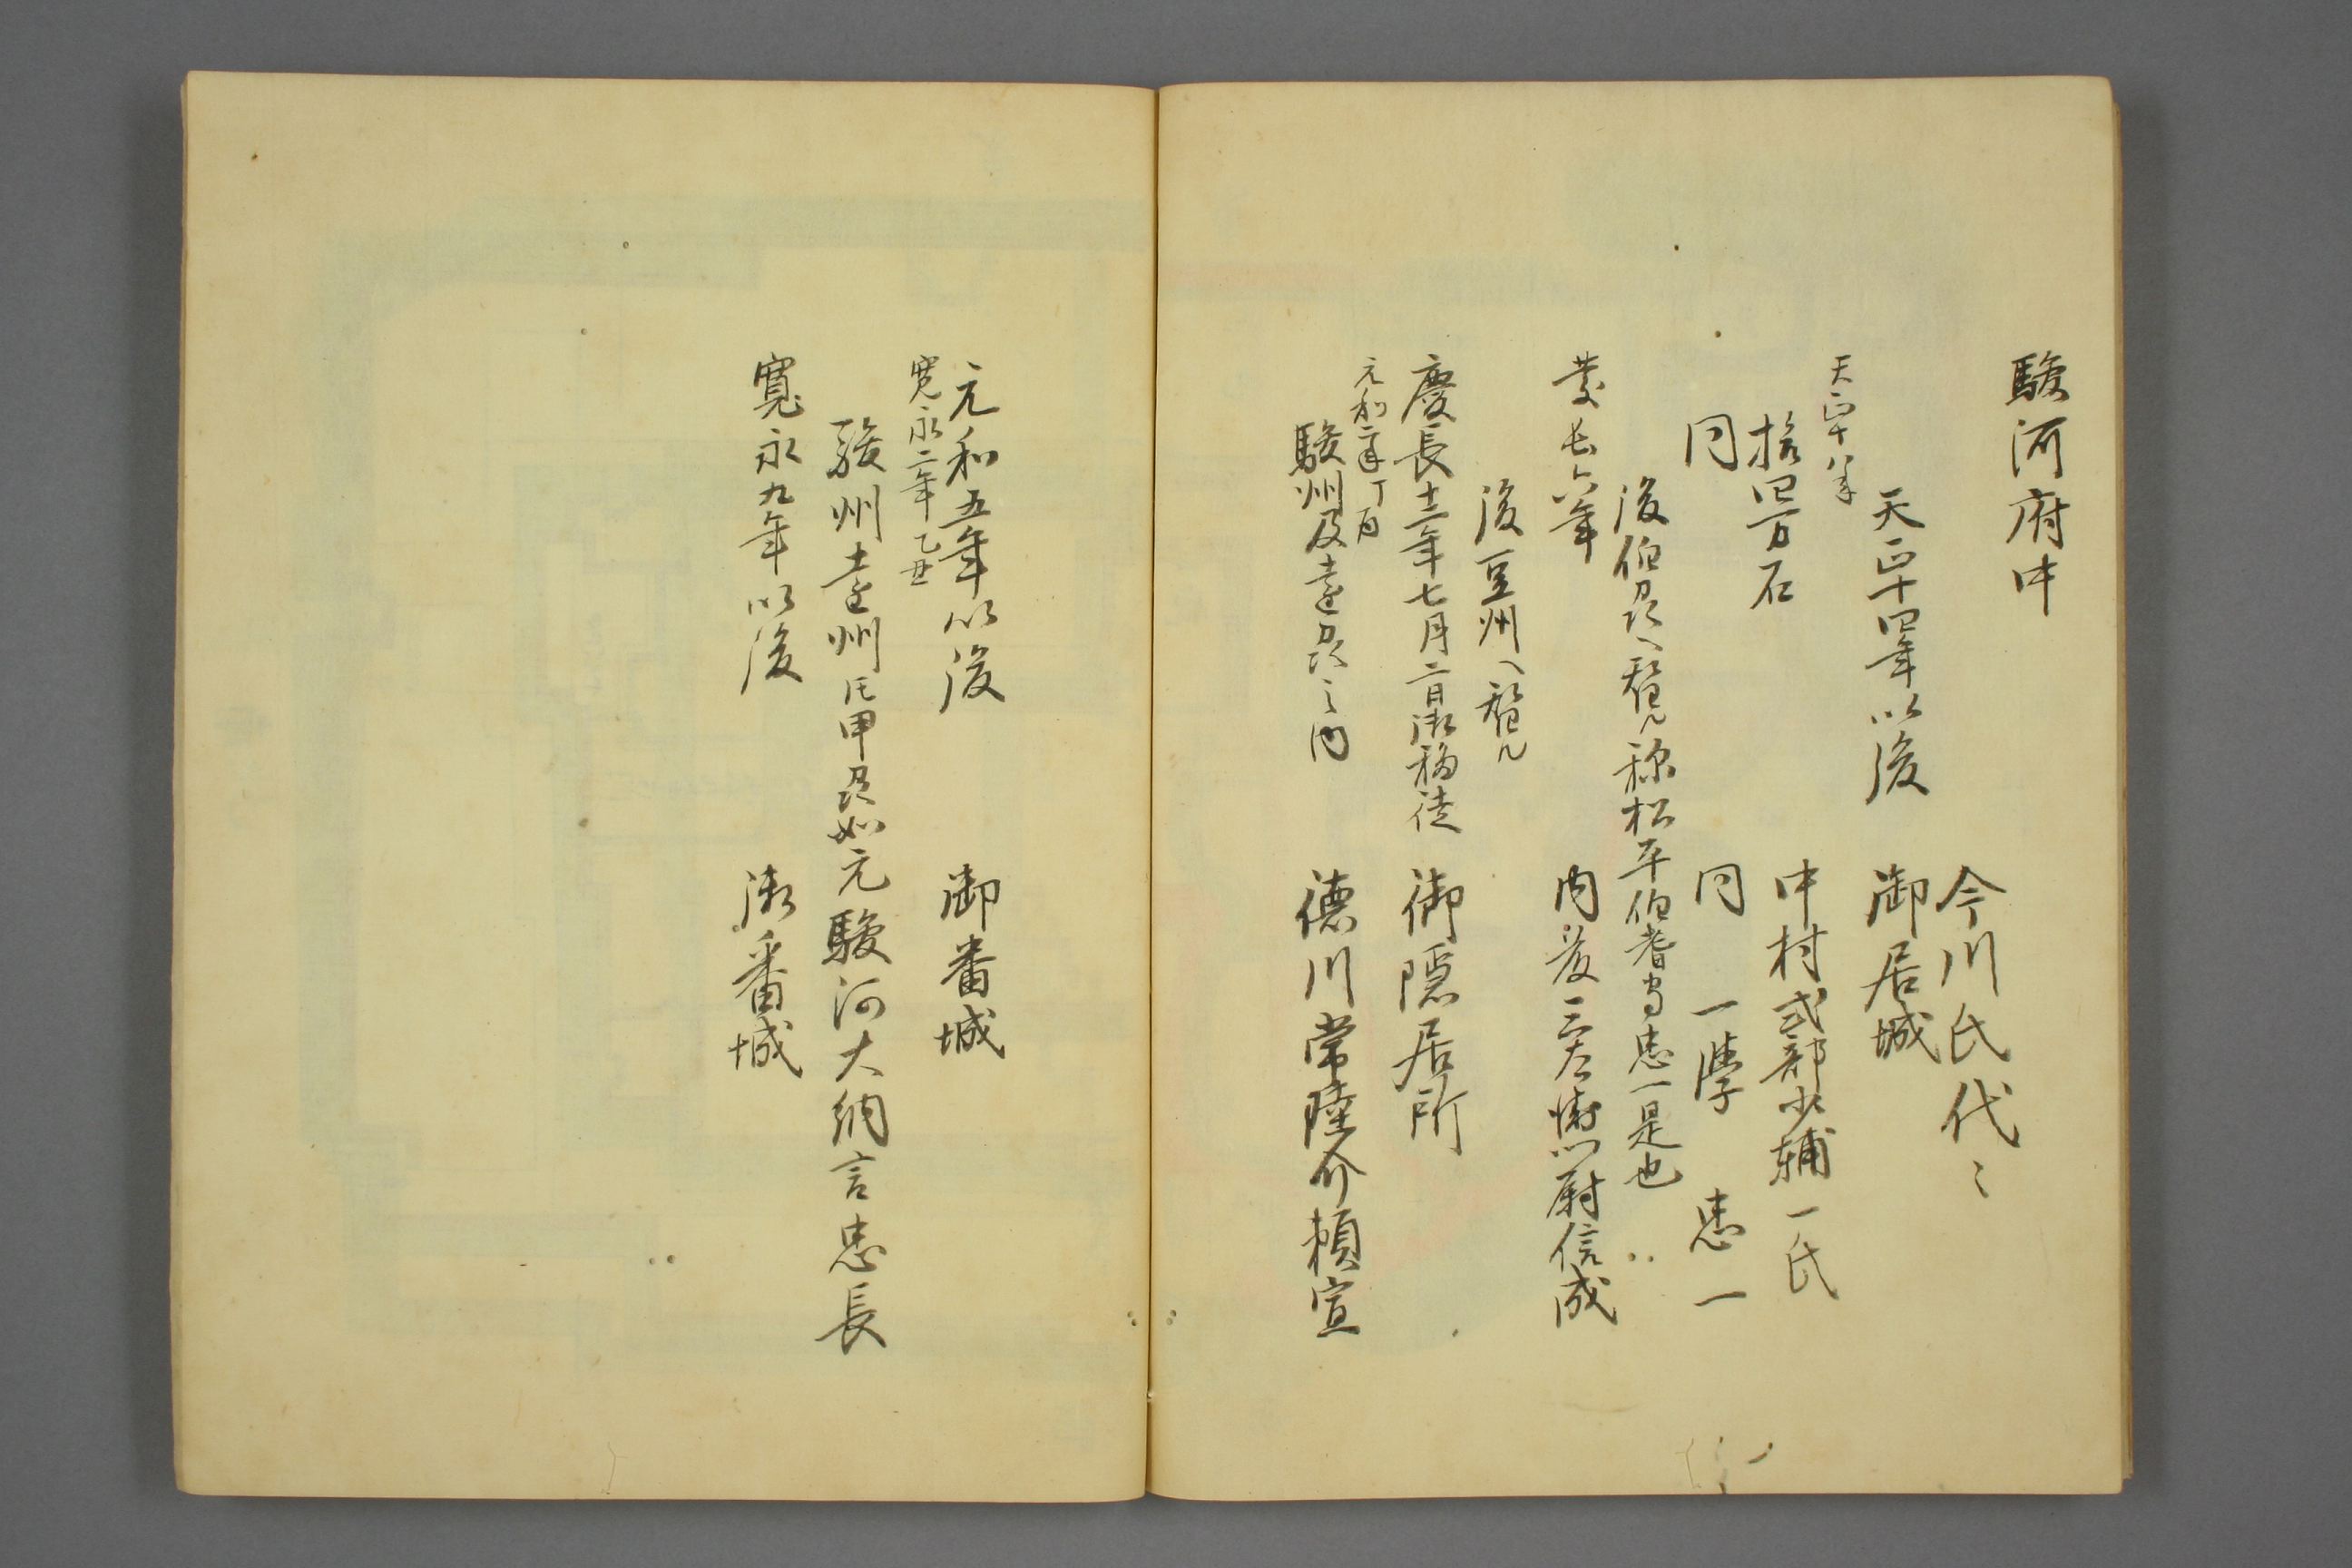 駿河府中
今川氏代〻
天正十四年以後　御居城
天正十八年
拾四万石　中村式部少輔一氏
同　同　一学　忠一
後伯州へ替ル称松平伯耆守忠一是也
慶長六年　内藤三左衛門尉信成
後豆州へ替ル
慶長十二年七月二日御移徙　御隠居所
元和二年丁酉
駿州及遠州之内　徳川常陸介頼宣
元和五年以後　御番城
寛永二年乙丑
駿州遠州甲州如元駿河大納言忠長
寛永九年以後　御番城